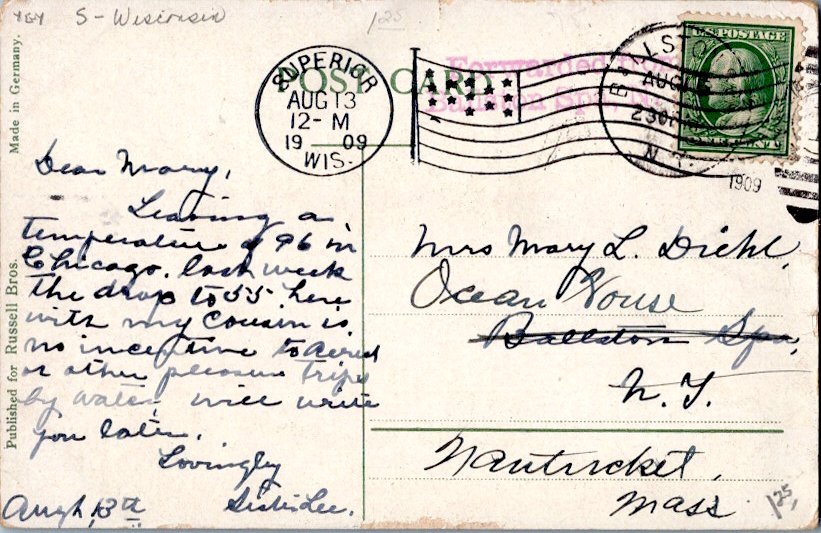 S - Wisconsin
1 25
Made in Germany.
Published for Russell Bros.
POST CARD
Forwarded from
Ballston Spa, N.
SUPERIOR
AUG 13
12 - M
1909
WIS.
BALLSTON
AUG
230
N.
1909
U.S. POSTAGE
Dear Mary,
Leaving a
temperature of 96 in
Chicago. last week
the drop to 55 here
with my cousin is
no incentive to
or other pleasure trips
by water, will write
you later.
Lovingly
Sister Lee.
Augh, 13th
Mrs Mary L. Diehl,
Ocean House
Ballston Spa,
N. Y.
Nantucket,
Mass
1 25,